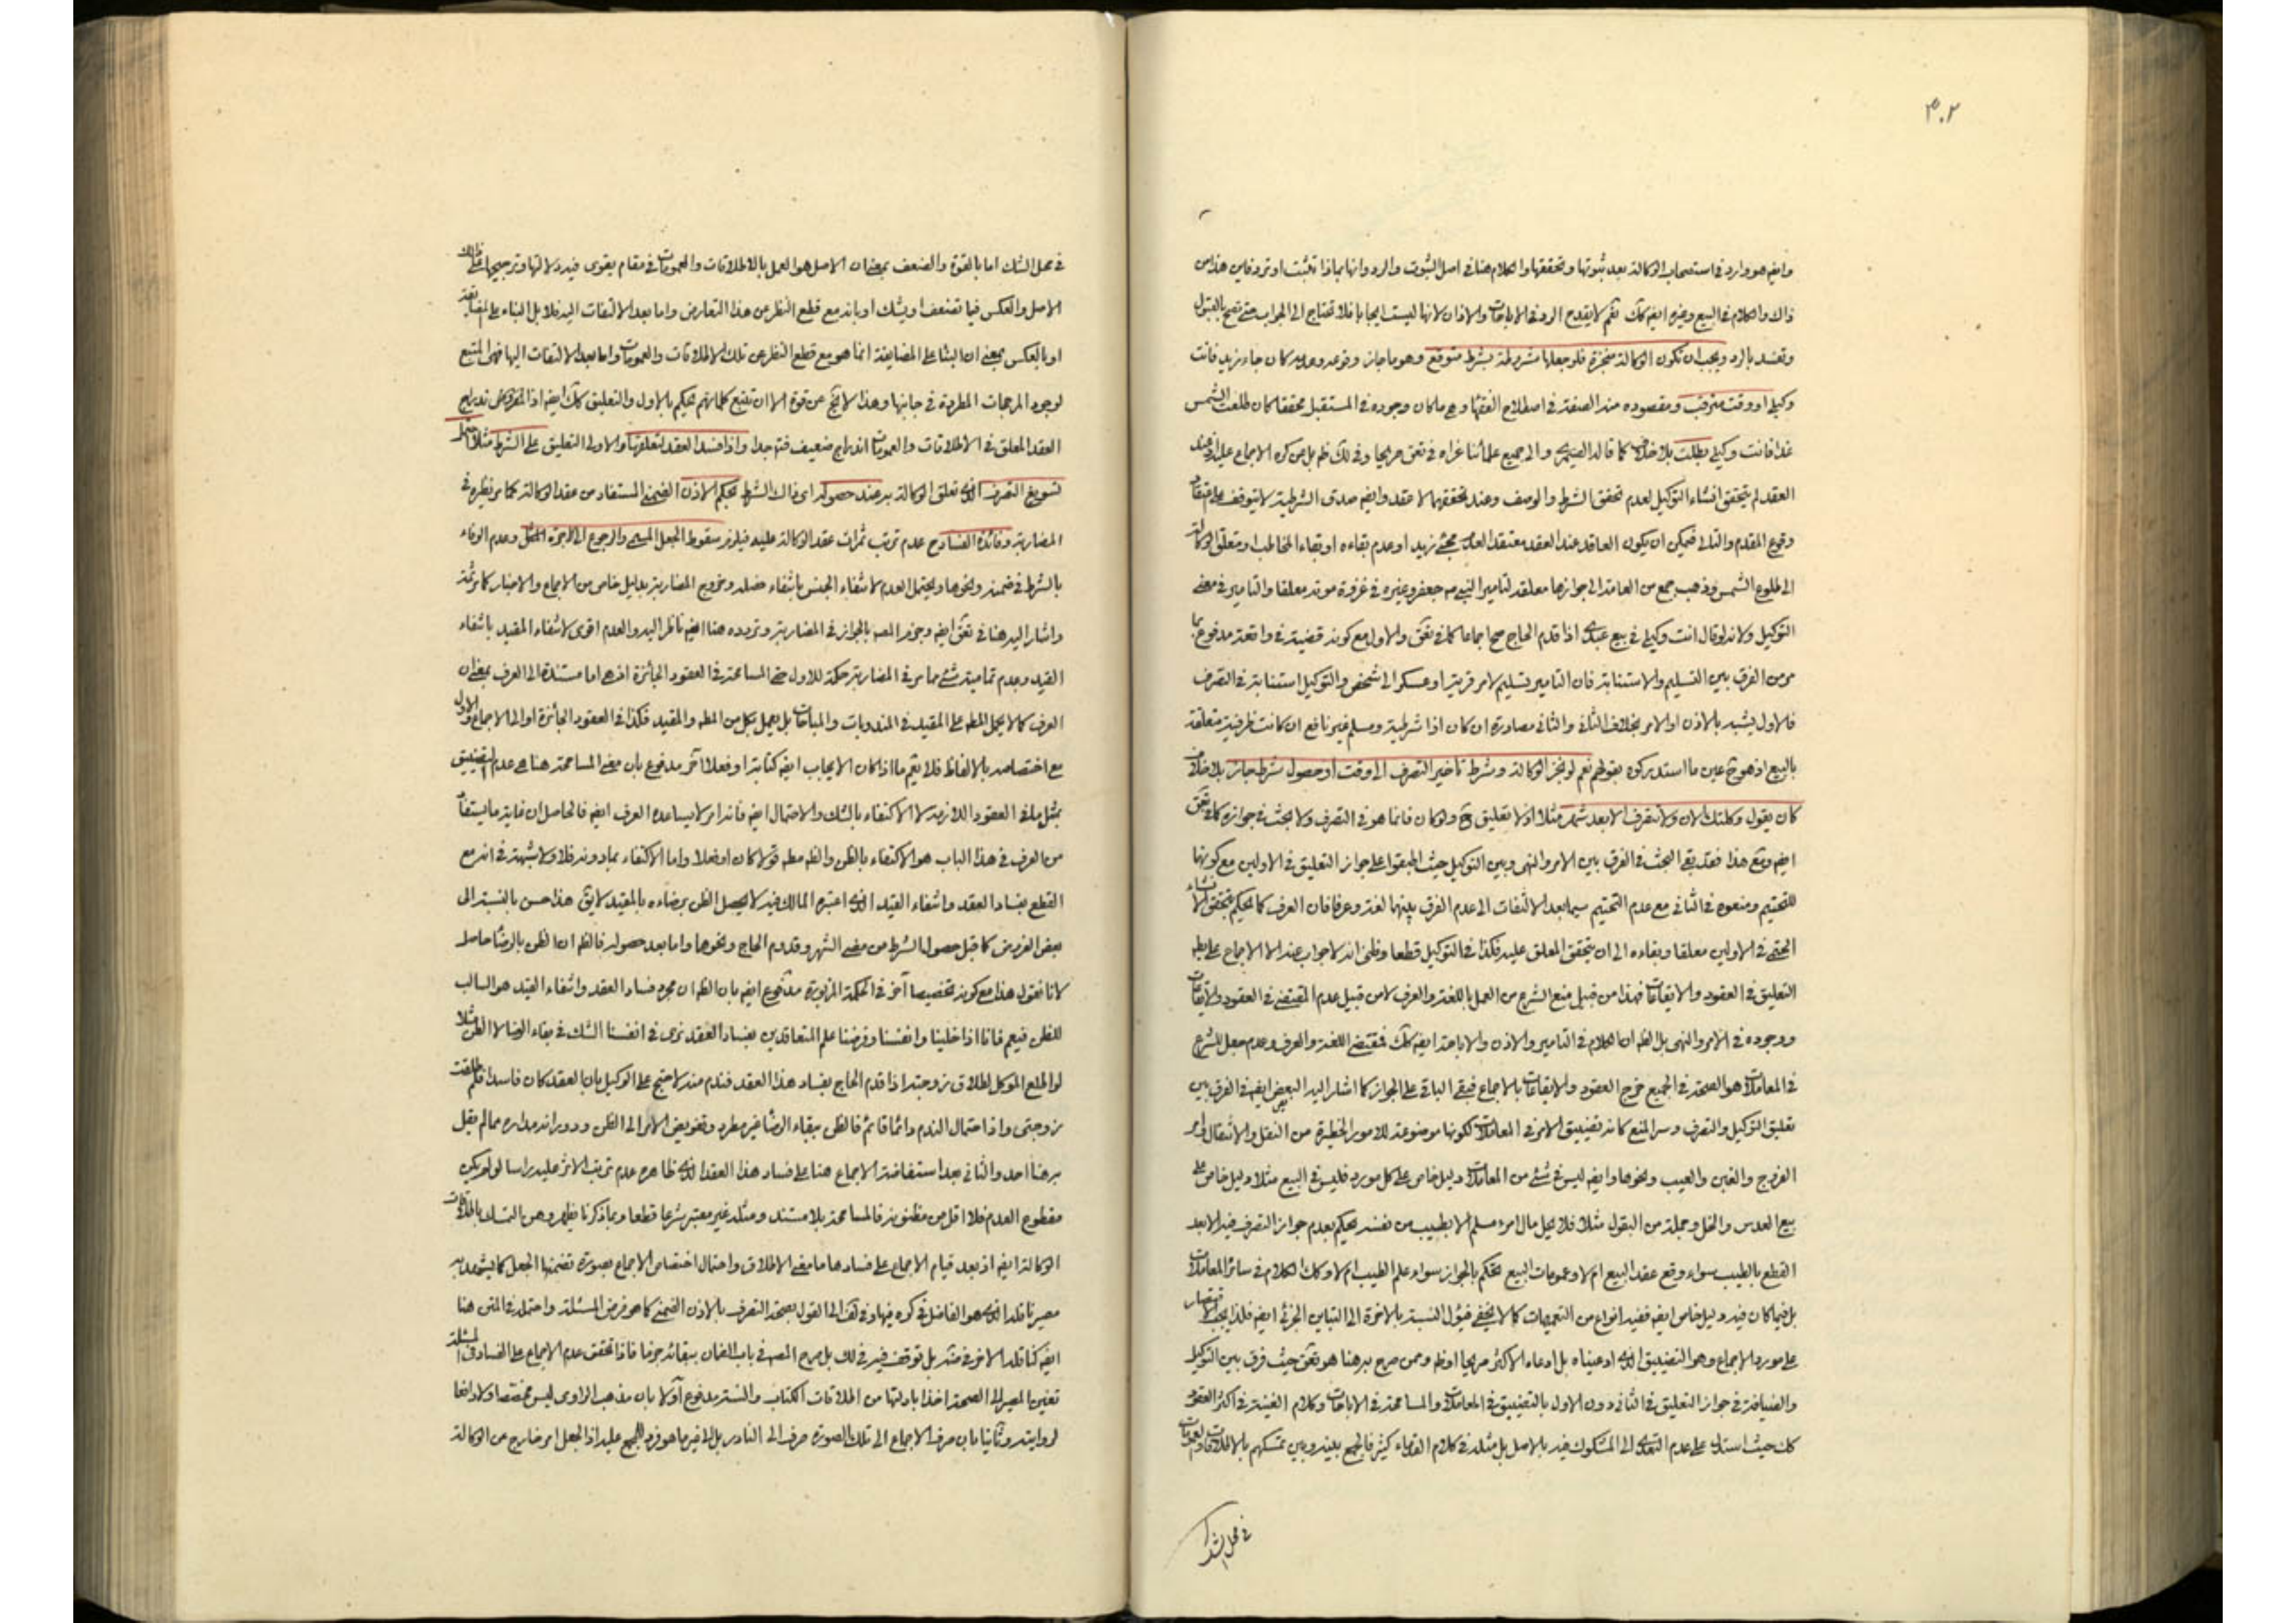 ٣٠٢
وايضه هو وارد في استصحاب الوكالة بعد ثبوتها وتحققها والكلام هنا في اصل الثبوت والرد وانها بماذا تثبت او ترد فاين هذا من
ذاك والكلام في البيع وغيره ايضه كك نعم لا يقدح الرد في الاباحات والاذن لانها ليست ايجابا فلا تحتاج الى الجواب حتى تصح بالقبول
وتفسد بالرد ويجب ان تكون الوكالة منجزة فلو جعلها مشروطة بشرط متوقع وهو ما جاز وقوعه وعدمه كان جاء زيد فانت
وكيلي او وقت مترقب ومقصوده منه الصفة في اصطلاح الفقهاء وهي ما كان وجوده في المستقبل محققا كان طلعت الشمس
غدا فانت وكيلي بطلت بلا خلاف كما قاله الصيمري والى جميع علمائنا عزاه في تعق صريحا وفي لك ظم بل عن كره الاجماع عليه اذ عند
العقد لم يتحقق انشاء التوكيل لعدم تحقق الشرط والوصف وعند تحققهما لا عقد وايضه صدق الشرطية لا يتوقف على
وقوع المقدم والتالى فيمكن ان يكون العاقد عند العقد معتقد العدم مجئ زيد او عدم بقاءه او بقاء المخاطب او متعلق الوكالة
الى طلوع الشمس وذهب جمع من العامة الى جوازها معلقة لتامير النبي ص جعفر وغيره في غزوة موتة معلقا والتامير في معنى
التوكيل ولانه لو قال انت وكيلي في بيع عبدي اذا قدم الحاج صح اجماعا كما في تعق والاول مع كونه قضية في واقعة مدفوع بما
مر من الفرق بين التسليم والاستنابة فان التامير تسليم لامر قرية او عسكر الى شخص والتوكيل استنابة في التصرف
فالاول يشبه بالاذن او الامر بخلاف الثاني والثاني مصادرة ان كان اذا شرطية ومسلم غير نافع ان كانت ظرفية متعلقة
بالبيع اذ هو ح عين ما استدركوه بقولهم نعم لو نجز الوكالة وشرط تاخير التصرف الى وقت او حصول شرط جاز بلا خلاف
كان يقول وكلتك الان ولا تتصرف الا بعد شهر مثلا اذ لا تعليق ح ولو كان فانما هو في التصرف ولا بحث في جوازه كما في تعق
ايضه ومع هذا فقد بقي البحث في الفرق بين الامر والنهى وبين التوكيل حيث اطبقوا على جواز التعليق في الاولين مع كونها
للتحتيم ومنعوه في الثاني مع عدم التحتيم سيما بعد الالتفات الى عدم الفرق بينهما لغة وعرفا فان العرف كما يحكم بتحقق الانشاء
الحتمى في الاولين معلقا وبقاءه الى ان يتحقق المعلق عليه فكذا في التوكيل قطعا وظني انه لا جواب عنه الا الاجماع على بط
التعليق في العقود والايقاعات فهذا من قبيل منع الشرع من العمل باللغة والعرف لا من قبيل عدم المقتضى في العقود والايقاعات
ووجوده في الامر والنهى بل الظه ان الكلام في التامير والاذن والاباحة ايضه كك فمقتضى اللغة والعرف وعدم جعل للشرع
في المعاملات هو الصحة في الجميع خرج العقود والايقاعات بالاجماع فبقى الباقي على الجواز كما اشار اليه البعض ايضه في الفرق بين
تعليق التوكيل والتصرف وسر المنع كانه تضييق الامر في المعاملات لكونها موضوعة للامور الخطيرة من النقل والانتقال وامر
الفروج والغبن والعيب ونحوها وايضه ليس في شئ من المعاملات دليل خاص على كل مورد فليس في البيع مثلا دليل خاص على
بيع العدس والخل وجملة من البقول مثلا فلا يحل مال امرء مسلم الا بطيب من نفسه يحكم بعدم جواز التصرف فيه الا بعد
القطع بالطيب سواء وقع عقد البيع ام لا وعمومات البيع تحكم بالجواز سواء علم الطيب ام لا وكك الكلام في سائر المعاملات
بل فيما كان فيه دليل خاص ايضه ففيه انواع من التعميمات كما لا يخفى فيؤل النسبة بالاخرة الى التباين الجزئى ايضه فلذا يجب الاقتصار
على مورد الاجماع وهو التضييق الذي ادعيناه بل ادعاه الاكثر صريحا او ظم وممن صرح به هنا هو تعق حيث فرق بين التوكيل
والضيافة في جواز التعليق في الثاني دون الاول بالتضييق في المعاملات والمسامحة في الاباحات وكلام الغنية في اكثر العقود
كك حيث استدل على عدم التعدي الى المشكوك فيه بالاصل بل مثله في كلام القدماء كثير فالجمع بينه وبين تمسكهم بالاطلاقات والعمومات
في محل الشك
في محل الشك اما بالقوة والضعف بمعنى ان الاصل هو العمل بالاطلاقات والعمومات في مقام يقوى فيه دلالتها وترجيحها على ذلك
الاصل والعكس فيما تضعف او يشك او بانه مع قطع النظر عن هذا التعارض واما بعد الالتفات اليه فلا بل البناء على المضايقة
او بالعكس بمعنى ان البناء على المضايقة انما هو مع قطع النظر عن تلك الاطلاقات والعمومات واما بعد الالتفات اليها فهي المتبع
لوجود المرجحات المطردة في جانبها وهذا لا يخ عن قوة الا ان تتبع كلماتهم يحكم بالاول والتعليق كك ايضه اذ المفروض ان اندراج
العقد المعلق في الاطلاقات والعمومات اندراج ضعيف فتح جدا واذا فسد العقد لتعلقها والاولى التعليق على الشرط مثلا احتمل
تسويغ التصرف الذي تعلق الوكالة به عند حصوله اى ذاك الشرط بحكم الاذن الضمني المستفاد من عقد الوكالة كما مر نظيره في
المضاربة وفائدة الفساد ح عدم ترتب ثمرات عقد الوكالة عليه فيلزم سقوط الجعل المسمى والرجوع الى الاجرة المثل وعدم الوفاء
بالشرط في ضمنه ونحوها ويحتمل العدم لانتفاء الجنس بانتفاء فصله وخروج المضاربة بدليل خاص من الاجماع والاخبار كما مر ثمة
واشار اليه هنا في تعق ايضه وجزم المصه بالجواز في المضاربة وتردده هنا ايضه ناظر اليه والعدم اقوى لانتفاء المقيد بانتفاء
القيد وعدم تمامية شئ مما مر في المضاربة حكمة للاول حتى المسامحة في العقود الجائزة اذ هي اما مستندة الى العرف بمعنى ان
العرف كما لا يحمل المطه على المقيد في المندوبات والمباحات بل يعمل بكل من المطه والمقيد فكذا في العقود الجائزة او الى الاجماع والاول
مع اختصاصه بالالفاظ فلا يتم ما اذا كان الايجاب ايضه كتابة او فعلا اخر مدفوع بان معنى المسامحة هنا هي عدم التضييق
بمثل ما في العقود اللازمة لا الاكتفاء بالشك والاحتمال ايضه فانه امر لا يساعده العرف ايضه فالحاصل ان غاية ما يستفاد
من العرف في هذا الباب هو الاكتفاء بالظن والظه مطه قولا كان او فعلا واما الاكتفاء بما دونه فلا ولا شبهة في انه مع
القطع بفساد العقد وانتفاء القيد الذي اعتبره المالك فيه لا يحصل الظن برضاءه بالمقيد لا يق هذا حسن بالنسبة الى
بعض الفروض كما قبل حصول الشرط من مضى الشهر وقدوم الحاج ونحوها واما بعد حصوله فالظه ان الظن بالرضا حاصل
لانا نقول هذا مع كونه تخصيصا آخر في الحكمة المزبورة مدفوع ايضه بان الظه ان مجرد فساد العقد وانتفاء القيد هو السالب
للظن فيعم فانا اذا خلينا وانفسنا وفرضنا علم المتعاقدين بفساد العقد نرى في انفسنا الشك في بقاء الرضا لا الظن مثلا
لو اطلع الموكل لطلاق زوجته اذا قدم الحاج بفساد هذا العقد فندم منه لاحتج على الوكيل بان العقد كان فاسدا فلم طلقت
زوجتى واذا احتمال الندم دائما قائم فالظن ببقاء الرضا غير مطرد وتفويض الامر الى الظن ودورانه مداره مما لم يقل
به هنا احد والثاني بعد استفاضة الاجماع هنا على فساد هذا العقد الذي ظاهره عدم ترتب الاثر عليه راسا لو لم يكن
مقطوع العدم فلا اقل من مظنونه فالمسامحة بلا مستند ومثله غير معتبر شرعا قطعا وبما ذكرنا ظهر وهن التمسك باطلاقات
الوكالة ايضه اذ بعد قيام الاجماع على فسادها ما معنى الاطلاق واحتمال اختصاص الاجماع بصورة تضمنها الجعل كما يشهد به
مصير ناقله الذي هو الفاضل في كره فيها وفي لف الى القول بصحة التصرف بالاذن الضمني كما هو فرض المسئلة واحتمله في المتن هنا
ايضه كناقله الاخر في مشد بل توقف فيه في لك بل صرح المصه في باب الضمان ببقائه جزما فاذا تحقق عدم الاجماع على الفساد في المسئلة
تعين المصير الى الصحة اخذا بادلتها من اطلاقات الكتاب والسنة مدفوع اولا بان مذهب الراوى ليس مخصصا ولا دافعا
لروايته وثانيا بان صرف الاجماع الى تلك الصورة صرف الى النادر بل الى غير ما هو فرد المجمع عليه اذ الجعل امر خارج عن الوكالة